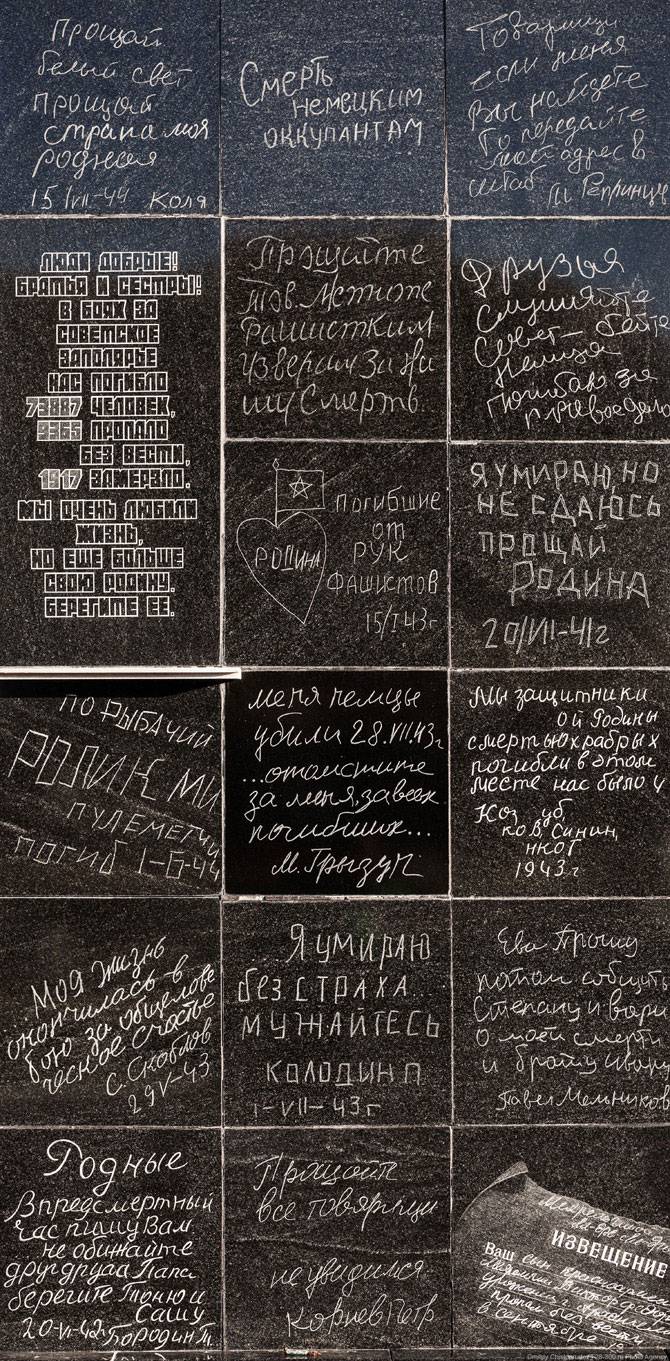 Прощай
белый свет
прощай
страна моя
родная
15/VII-44 Коля
Смерть
немецким
оккупантам
Товарищи
если меня
Вы найдете
То передайте
мой адрес в
штаб Репринцев
ЛЮДИ ДОБРЫЕ!
БРАТЬЯ И СЕСТРЫ!
В БОЯХ ЗА
СОВЕТСКОЕ
ЗАПОЛЯРЬЕ
НАС ПОГИБЛО
73887 ЧЕЛОВЕК,
9365 ПРОПАЛО
БЕЗ ВЕСТИ,
1917 ЗАМЕРЗЛО.
МЫ ОЧЕНЬ ЛЮБИЛИ
ЖИЗНЬ,
НО ЕЩЕ БОЛЬШЕ
СВОЮ РОДИНУ.
БЕРЕГИТЕ ЕЕ.
Прощайте
тов. Метите
Фашистким
Узверям За Жи
Смерть.
Друзья
Слушайте
Совет-бейте
немцев
Погибаю за
правое дело
РОДИНА
Погибшие
от
РУК
Фашистов
15/I 43г
Я УМИРАЮ, НО
НЕ СДАЮСЬ
ПРОЩАЙ
РОДИНА
20/VII-41г
ПО РЫБАЧИЙ
РОЛИК МИ
ПУЛЕМЕТЧИ
ПОГИБ 1-6-44
меня немцы
убили 28.VII.43г
...отомстите
за меня, за всех
погибших...
М. Грызун
Мы защитники
ой Родины
смертью храбрых
погибли в этом
месте нас было 4
Коз уб,
ков, Синин,
нков
1943г
...Моя жизнь
окончилась в
бою за общечелове
ческое счастье
С. Скоблов
29 V-43
...Я умираю
без СТРАХА...
МУЖАЙТЕСЬ
КОЛОДИН П
1-VII-43г
Ева Прошу
потом сообщить
Степану и вари
О моей смерти
и брату ивану
Павел Мельников
Родные
В предсмертный
час пишу Вам
не обижайте
друг друга Папа
берегите Тоню и
Сашу
20-VI-42 Бородин Т.
Прощайте
все товарищи
не увидимся
Корнев Петр
ИЗВЕЩЕНИЕ
Ваш сын красноармеец
пропал без вести
в сентябре